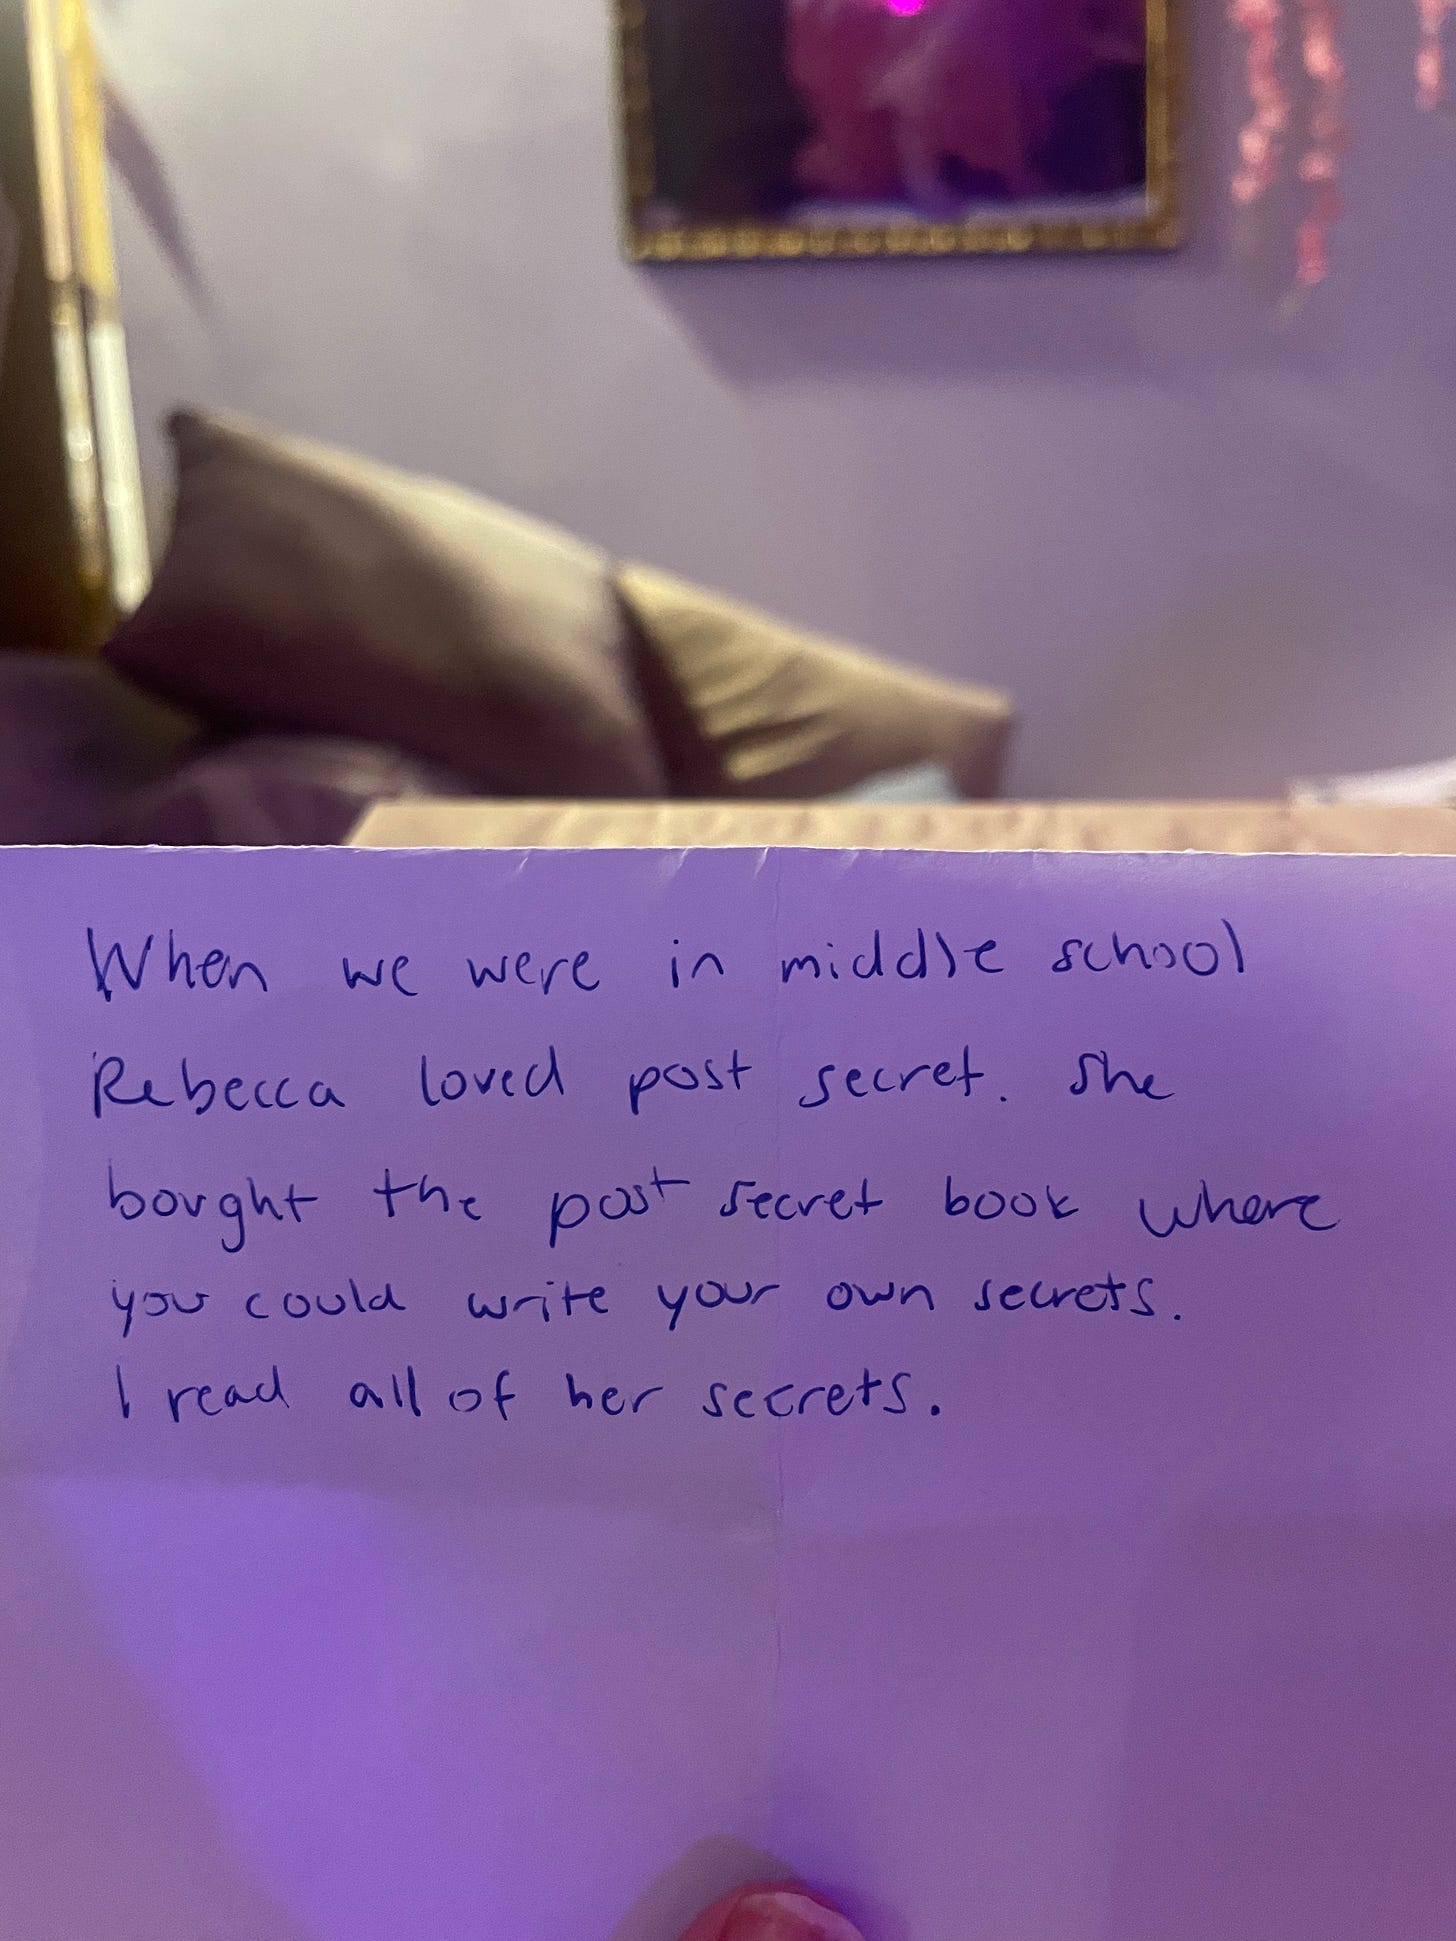 When we were in middle school
Rebecca loved post secret. She
bought the post secret book where
you could write your own secrets.
I read all of her secrets.